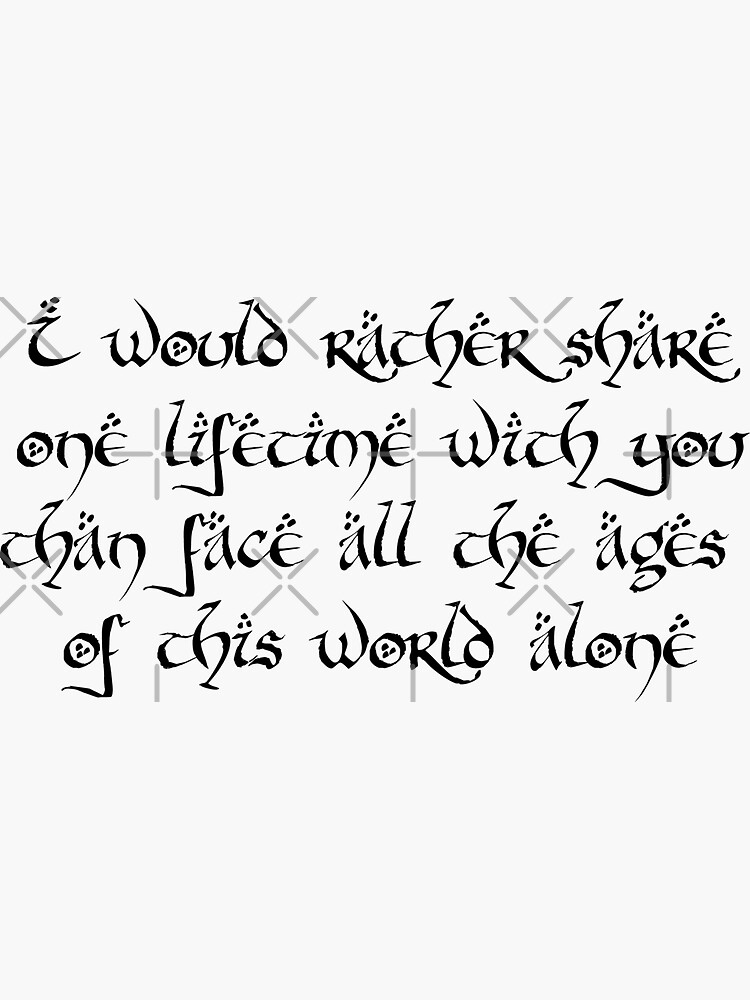 i would rather share
one lifetime with you
than face all the ages
of this world alone